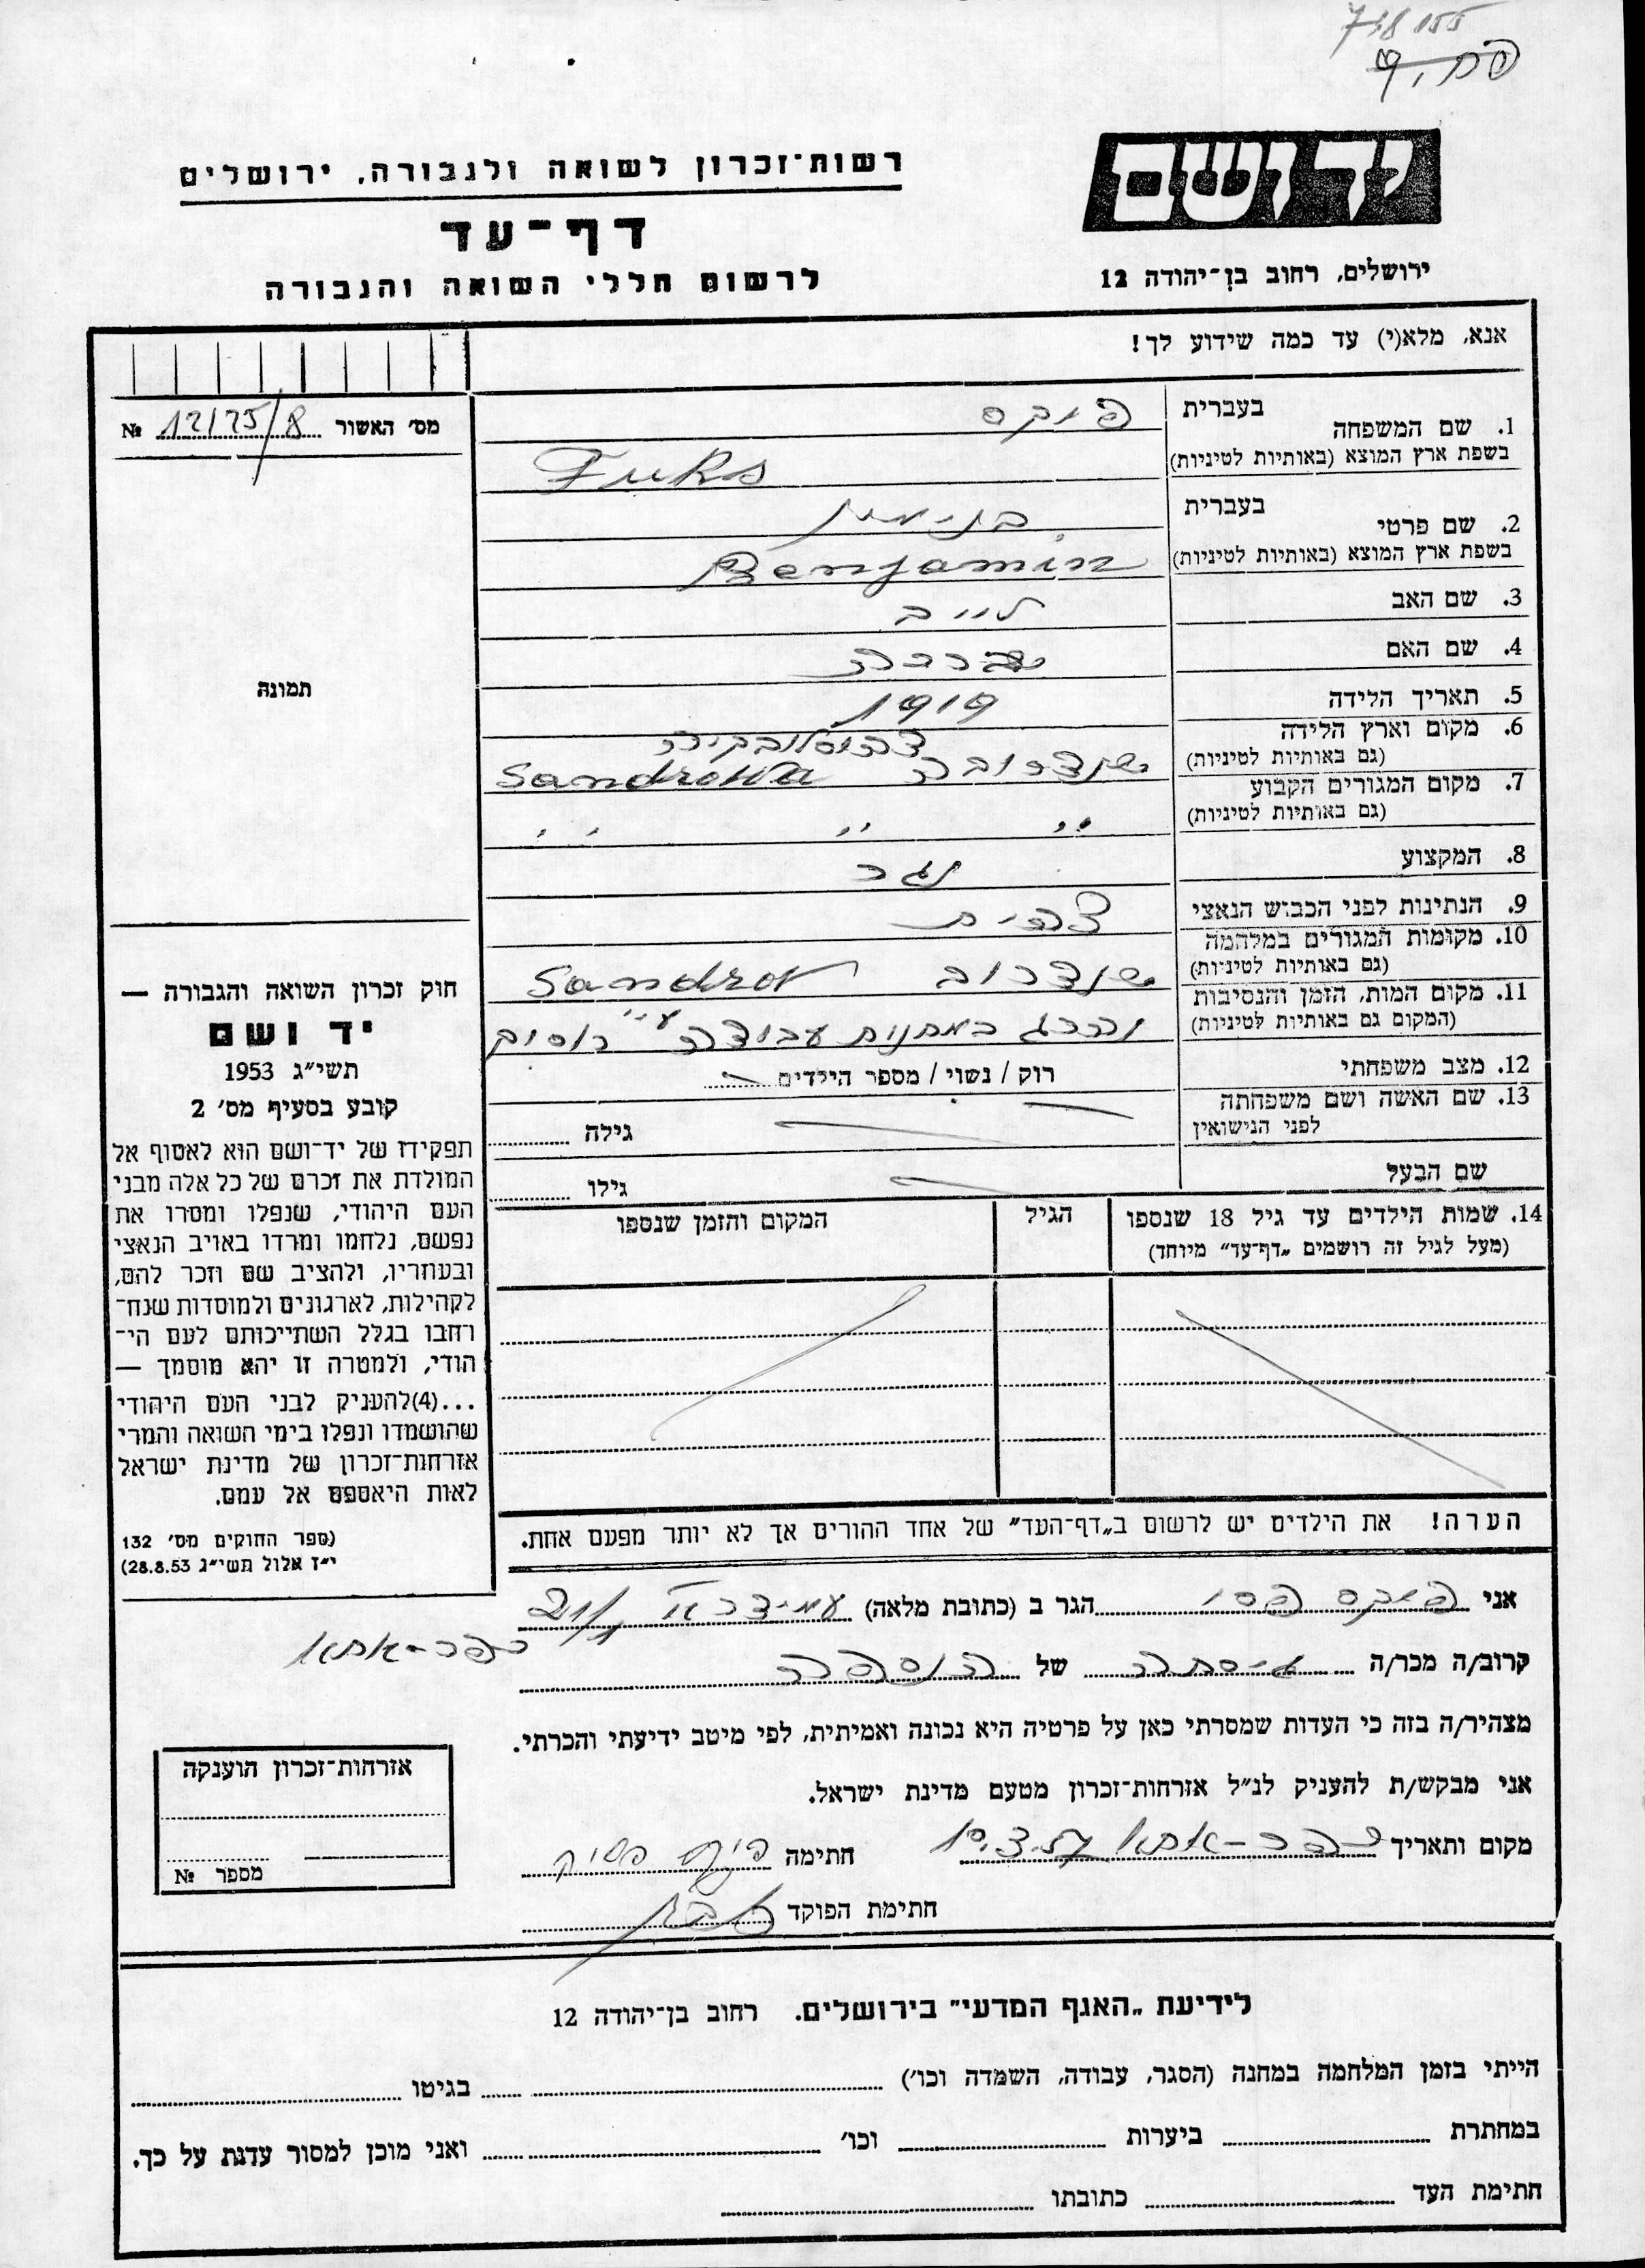 718155
יד ושם
ירושלים, רחוב בן־יהודה 12
רשות־זכרון לשואה ולגבורה, ירושלים
דף־עד
לרשום חללי השואה והגבורה
אנא, מלא(י) עד כמה שידוע לך!
מס׳ האשור 12125/8 №
תמונה
1. שם המשפחה בעברית פוקס
בשפת ארץ המוצא (באותיות לטיניות) Fuks
2. שם פרטי בעברית בנימין
בשפת ארץ המוצא (באותיות לטיניות) Benjamin
3. שם האב לייב
4. שם האם
5. תאריך הלידה 1919
6. מקום וארץ הלידה צכוסלובקיה
(גם באותיות לטיניות) שנדרובה Sandrowa
7. מקום המגורים הקבוע
(גם באותיות לטיניות) ״ ״ ״ ״
8. המקצוע נגר
9. הנתינות לפני הכבוש הנאצי צ׳כית
10. מקומות המגורים במלחמה
(גם באותיות לטיניות) שנדרוב Sandrov
11. מקום המות, הזמן והנסיבות
(המקום גם באותיות לטיניות) נהרג במחנות עבודה ע״י רוסים
12. מצב משפחתי רוק / נשוי / מספר הילדים
13. שם האשה ושם משפחתה
לפני הנישואין גילה
שם הבעל גילו
14. שמות הילדים עד גיל 18 שנספו הגיל המקום והזמן שנספו
(מעל לגיל זה רושמים „דף־עד״ מיוחד)
הערה! את הילדים יש לרשום ב„דף־העד״ של אחד ההורים אך לא יותר מפעם אחת.
חוק זכרון השואה והגבורה —
יד ושם
תשי״ג 1953
קובע בסעיף מס׳ 2
תפקידו של יד־ושם הוא לאסוף אל
המולדת את זכרם של כל אלה מבני
העם היהודי, שנפלו ומסרו את
נפשם, נלחמו ומרדו באויב הנאצי
ובעוזריו, ולהציב שם וזכר להם,
לקהילות, לארגונים ולמוסדות שנח־
רחבו בגלל השתייכותם לעם הי־
הודי, ולמטרה זו יהא מוסמך —
...(4)להעניק לבני העם היהודי
שהושמדו ונפלו בימי השואה והמרי
אזרחות־זכרון של מדינת ישראל
לאות היאספם אל עמם.
(ספר החוקים מס׳ 132
י״ז אלול תשי״ג 28.8.53)
אני פוקס פסי הגר ב (כתובת מלאה) עמידר א׳ 21/1
כפר־אתא
קרוב/ה מכר/ה גיסתה של הנספה
מצהיר/ה בזה כי העדות שמסרתי כאן על פרטיה היא נכונה ואמיתית, לפי מיטב ידיעתי והכרתי.
אני מבקש/ת להעניק לנ״ל אזרחות־זכרון מטעם מדינת ישראל.
מקום ותאריך כפר־אתא 10.3.57 חתימה
חתימת הפוקד
אזרחות־זכרון הוענקה
מספר №
לידיעת „האגף המדעי״ בירושלים. רחוב בן־יהודה 12
הייתי בזמן המלחמה במחנה (הסגר, עבודה, השמדה וכו׳) בגיטו
במחתרת ביערות וכו׳ ואני מוכן למסור עדות על כך.
חתימת העד כתובתו